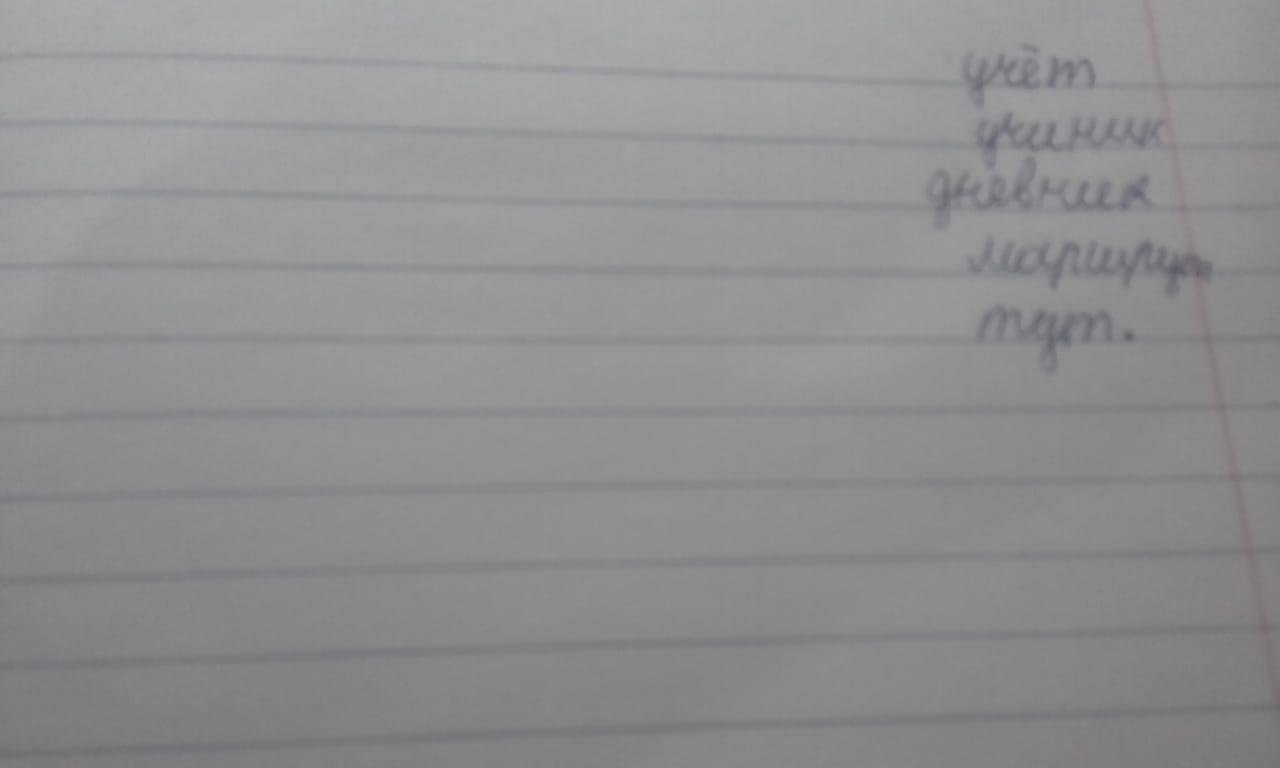 учёт
ученик
дневник
маршрут
тут.